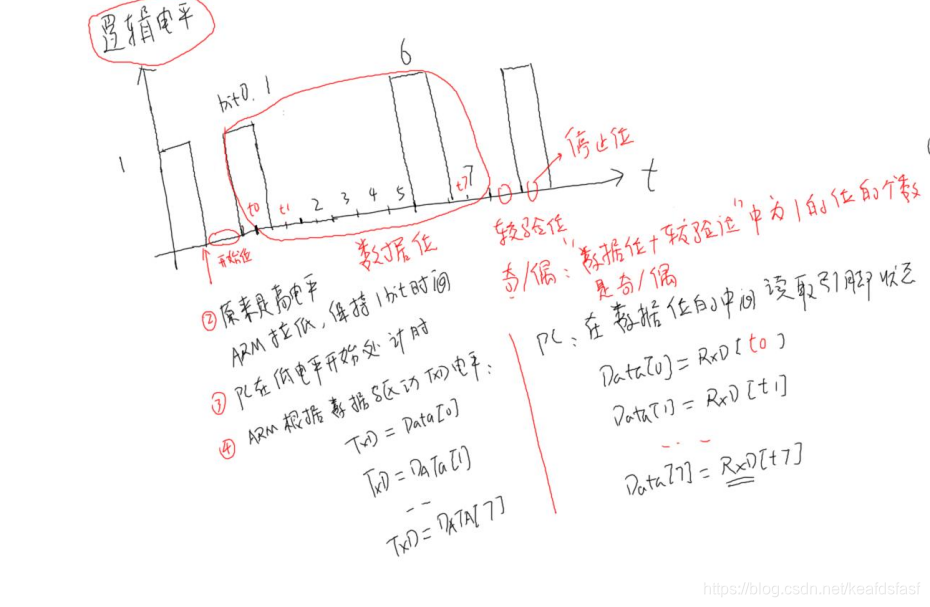 逻辑电平
1
bit0. 1
6
t0 t1 2 3 4 5 t7 7
t
开始位
数据位
较验位
停止位
奇/偶: "数据位+较验位"中为1的位的个数
是奇/偶
② 原来是高电平
ARM拉低, 维持1bit时间
③ PC在低电平开始处计时
④ ARM根据数据驱动TxD电平:
TxD=Data[0]
TxD=DATa[1]
TxD=DATA[7]
PC: 在数据位的中间读取引脚状态
Data[0]=RxD[t0]
Data[1]=RxD[t1]
Data[7]=RxD[t7]
https://blog.csdn.net/keafdsfasf